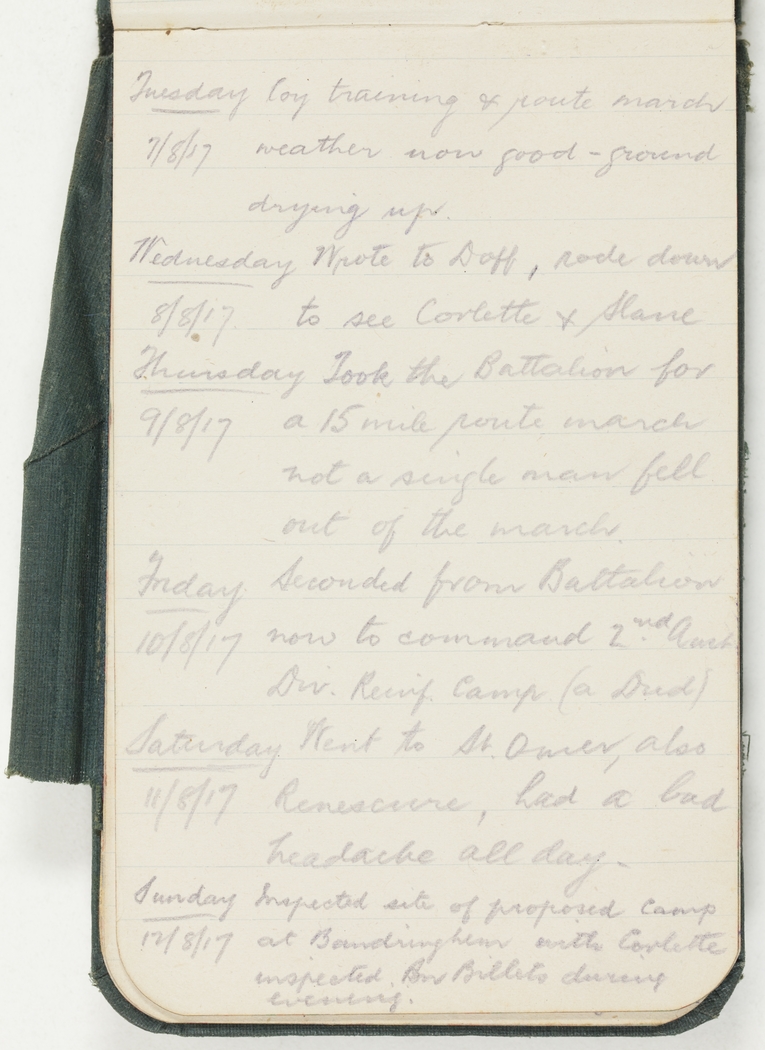 Tuesday Coy training & route march
7/8/17 weather now good - ground
drying up.
Wednesday Wrote to Doff, rode down
8/8/17 to see Corlette & Slane
Thursday Took the Battalion for
9/8/17 a 15 mile route march
not a single man fell
out of the march.
Friday Seconded from Battalion
10/8/17 now to command 2nd Aust
Div. Reinf. Camp (a Dud)
Saturday Went to St. Omer, also
11/8/17 Renescure, had a bad
headache all day.
Sunday Inspected site of proposed camp
12/8/17 at Bandringhem with Corlette
inspected Bn Billets during
evening.